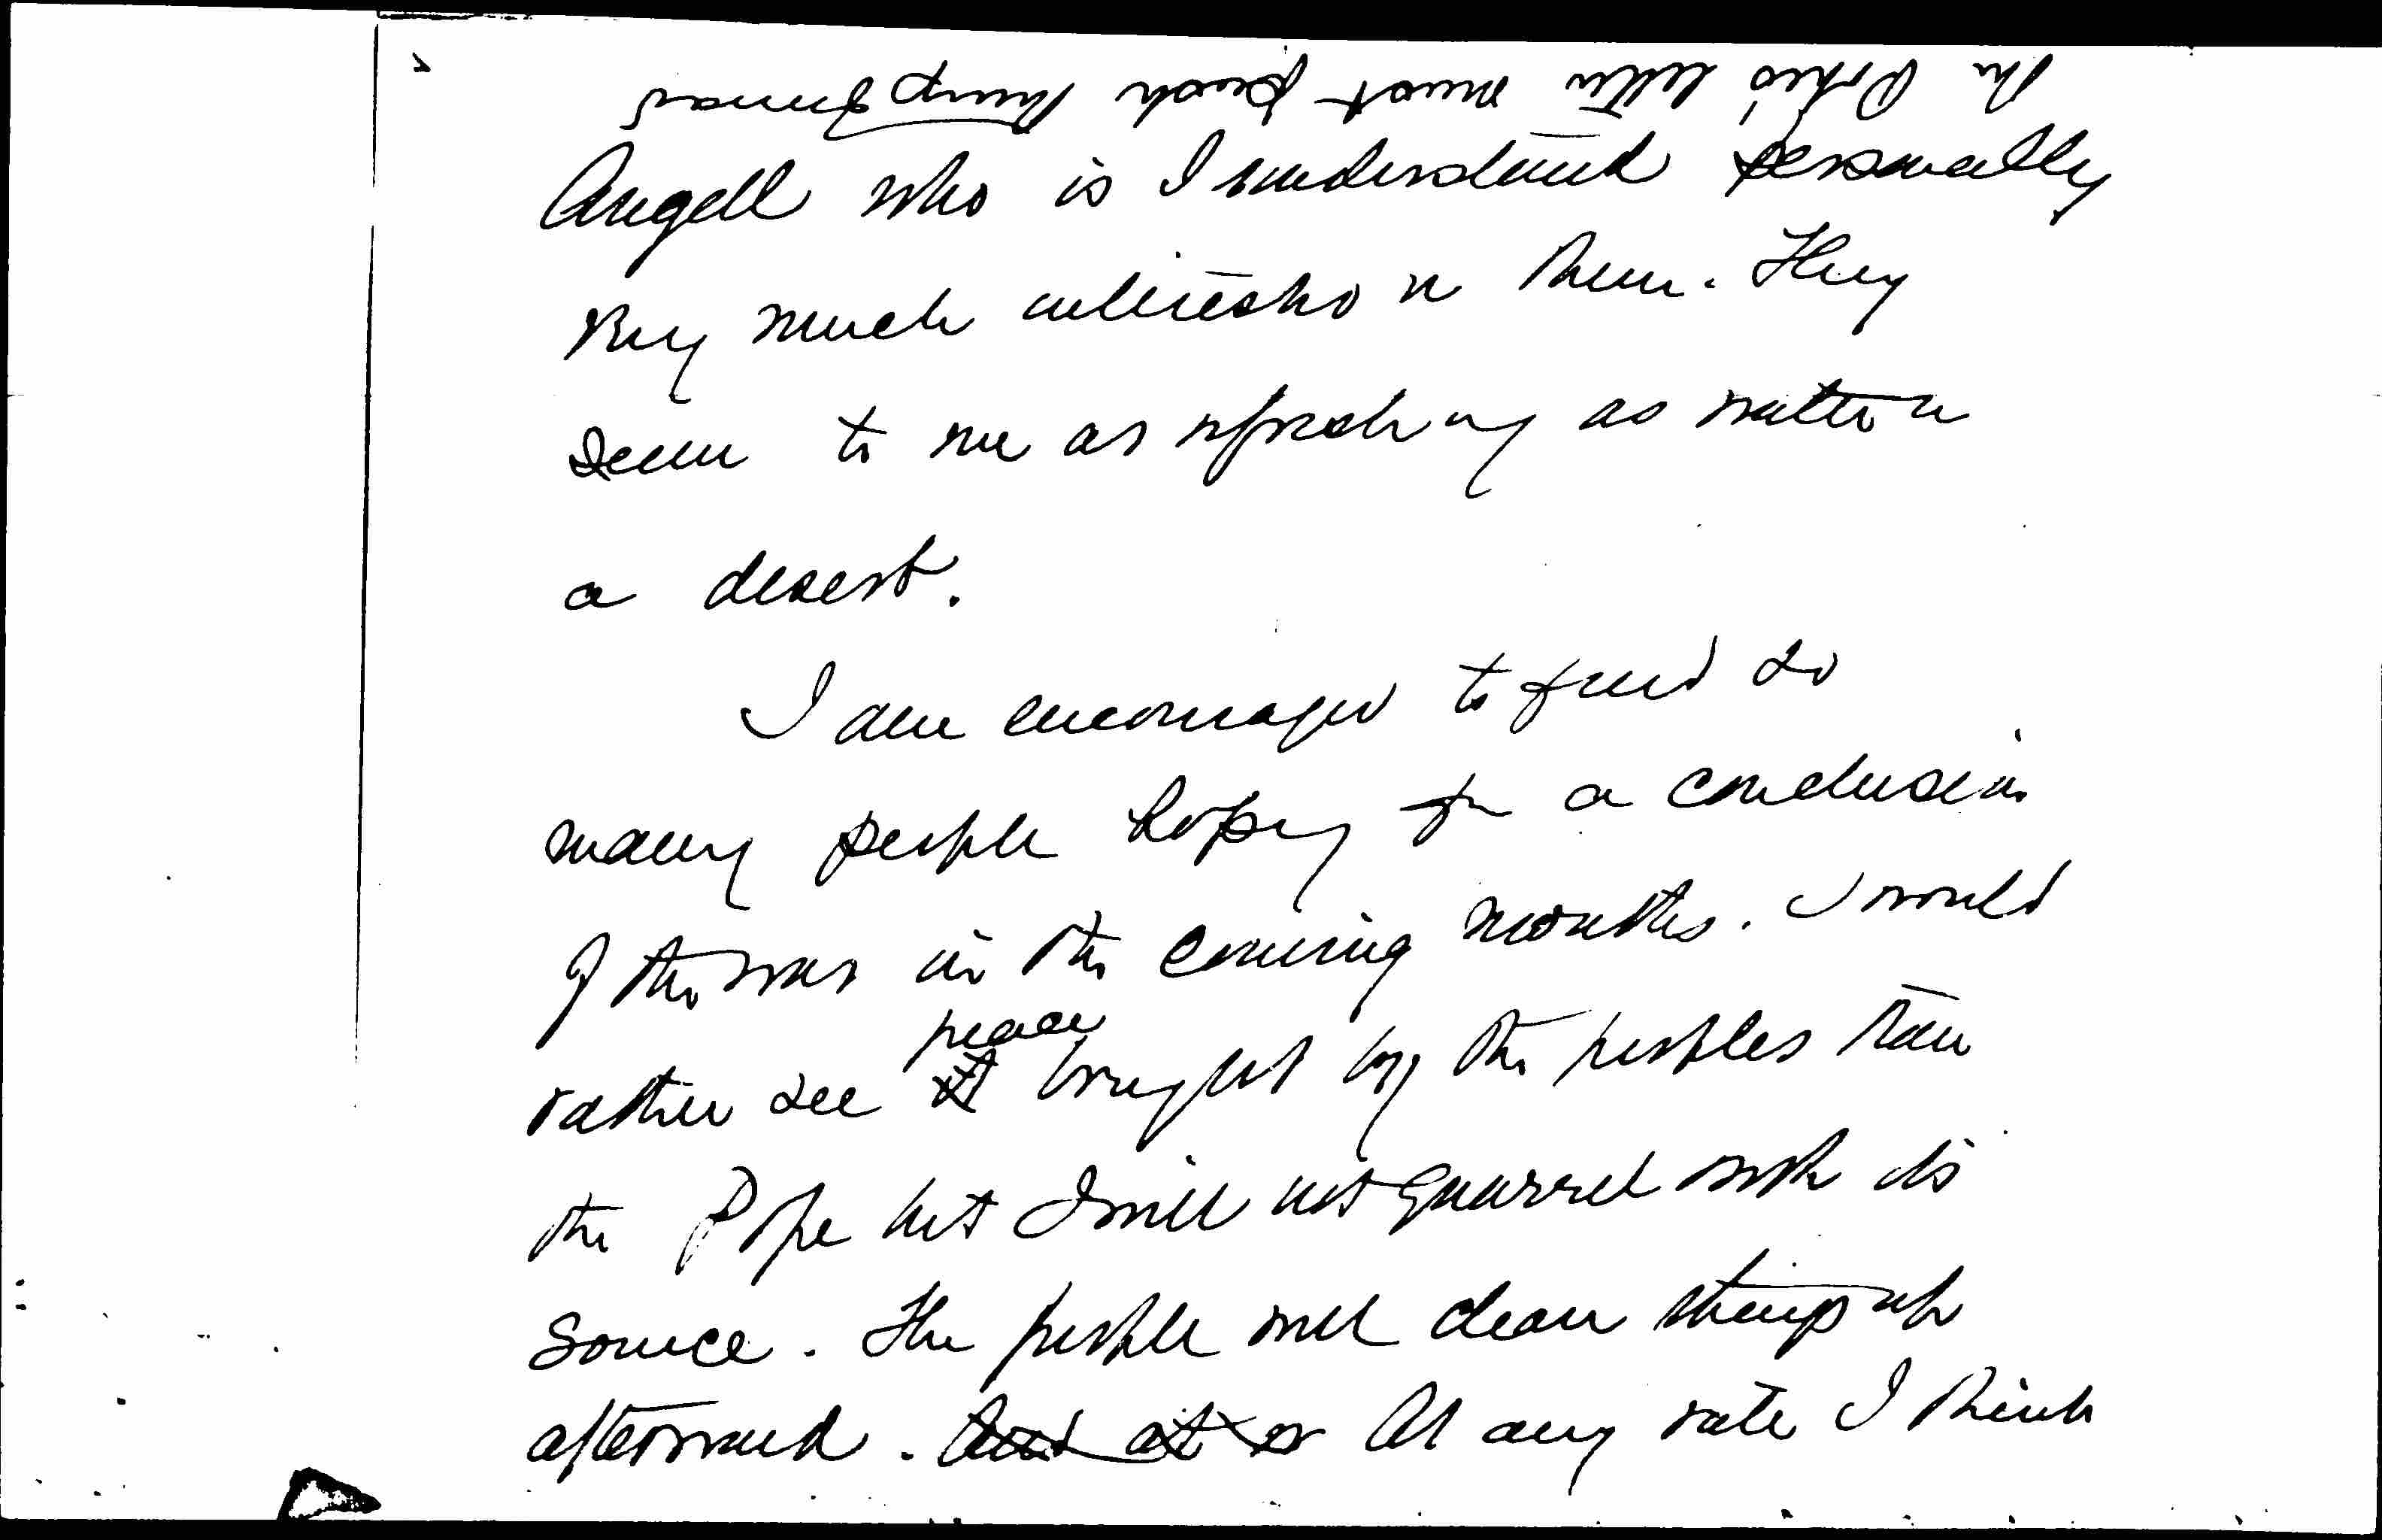 The Pope's letter must push things
Angell who is I understand personally
very much interested in them. They
seem to me as refreshing as water in
a desert.
I am encouraged to find so
many people hoping for a conclusion
of the war in the coming months. I would
peace
rather see it brought by the peoples than
the Pope but I will not quarrel with its
source. The people will clean things up
afterward. But at At any rate I think